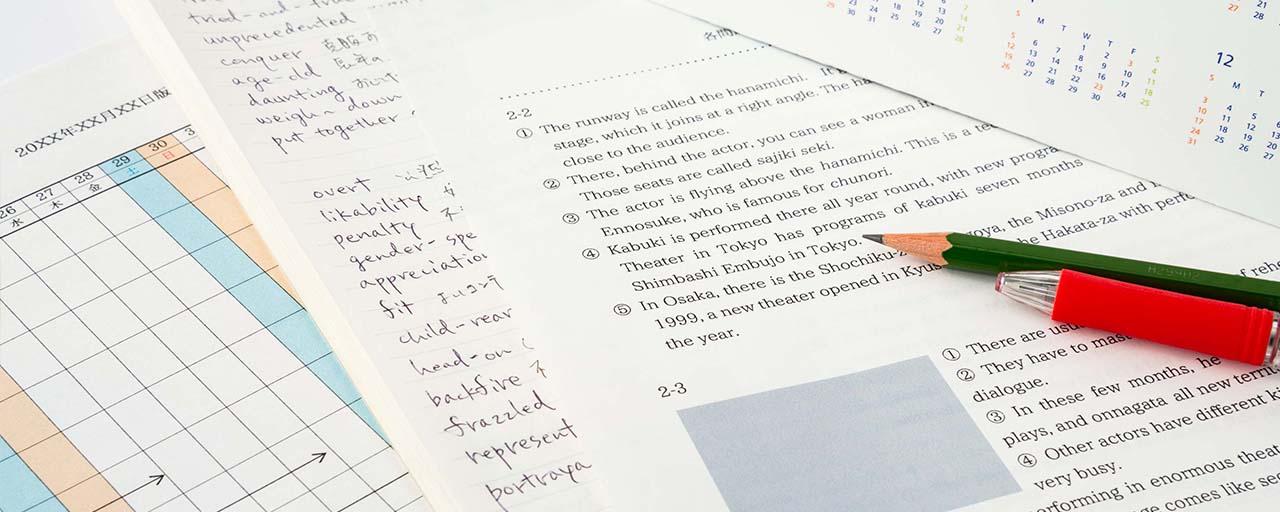 20XX年XX月XX日版
26 27 28 29 30
水 木 金 土 日
unprecedented
conquer
age-old
daunting
weigh-down
put together
overt
likability
penalty
gender-spe
appreciation
fit
child-rear
head-on
backfire
frazzled
represent
portraya
2-2
① The runway is called the hanamichi. It
stage, which it joins at a right angle. The
close to the audience.
② There, behind the actor, you can see a woman in
Those seats are called sajiki seki.
③ The actor is flying above the hanamichi. This is a
Ennosuke, who is famous for chunori.
④ Kabuki is performed there all year round, with new progra
Theater in Tokyo has programs of kabuki seven months
Shimbashi Embujo in Tokyo.
⑤ In Osaka, there is the Shochiku-za goya, the Misono-za and
1999, a new theater opened in Kyus the Hakata-za with
the year.
2-3
① There are usu
② They have to mas
dialogue.
③ In these few months, he
plays, and onnagata all new territ
④ Other actors have different
very busy.
erforming in enormous theat
ge comes like
S M T W T F S
1 2 3 4
5 6 7 8 9 10 11
12 13 14 15 16 17 18
19 20 21 22 23 24 25
26 27 28 29 30
12
S M T
3 4 5 6
10 11 12 13
17 18 19 20
24 25 26 27
31
H299H2